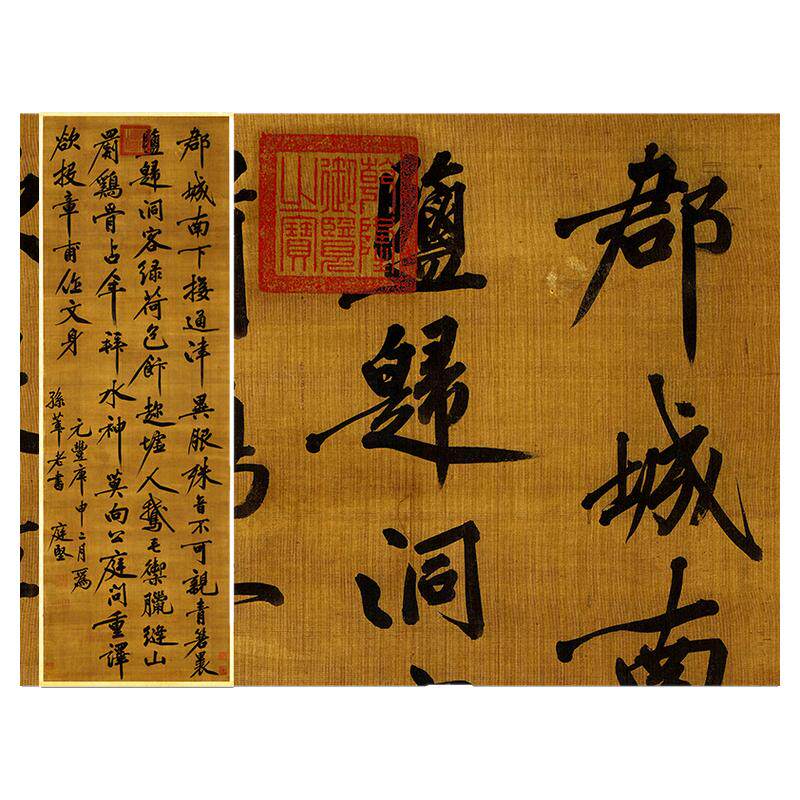 郡城南下接通津異服殊音不可親青箬裹
鹽歸洞客緑荷包飰趂墟人鵝毛禦臘縫山
罽鷄骨占年拜水神莫向公庭問重譯
欲投章甫作文身
元豐庚申二月為
孫莘老書 庭堅
郡城南
鹽歸洞
乾隆
御覽
之寶